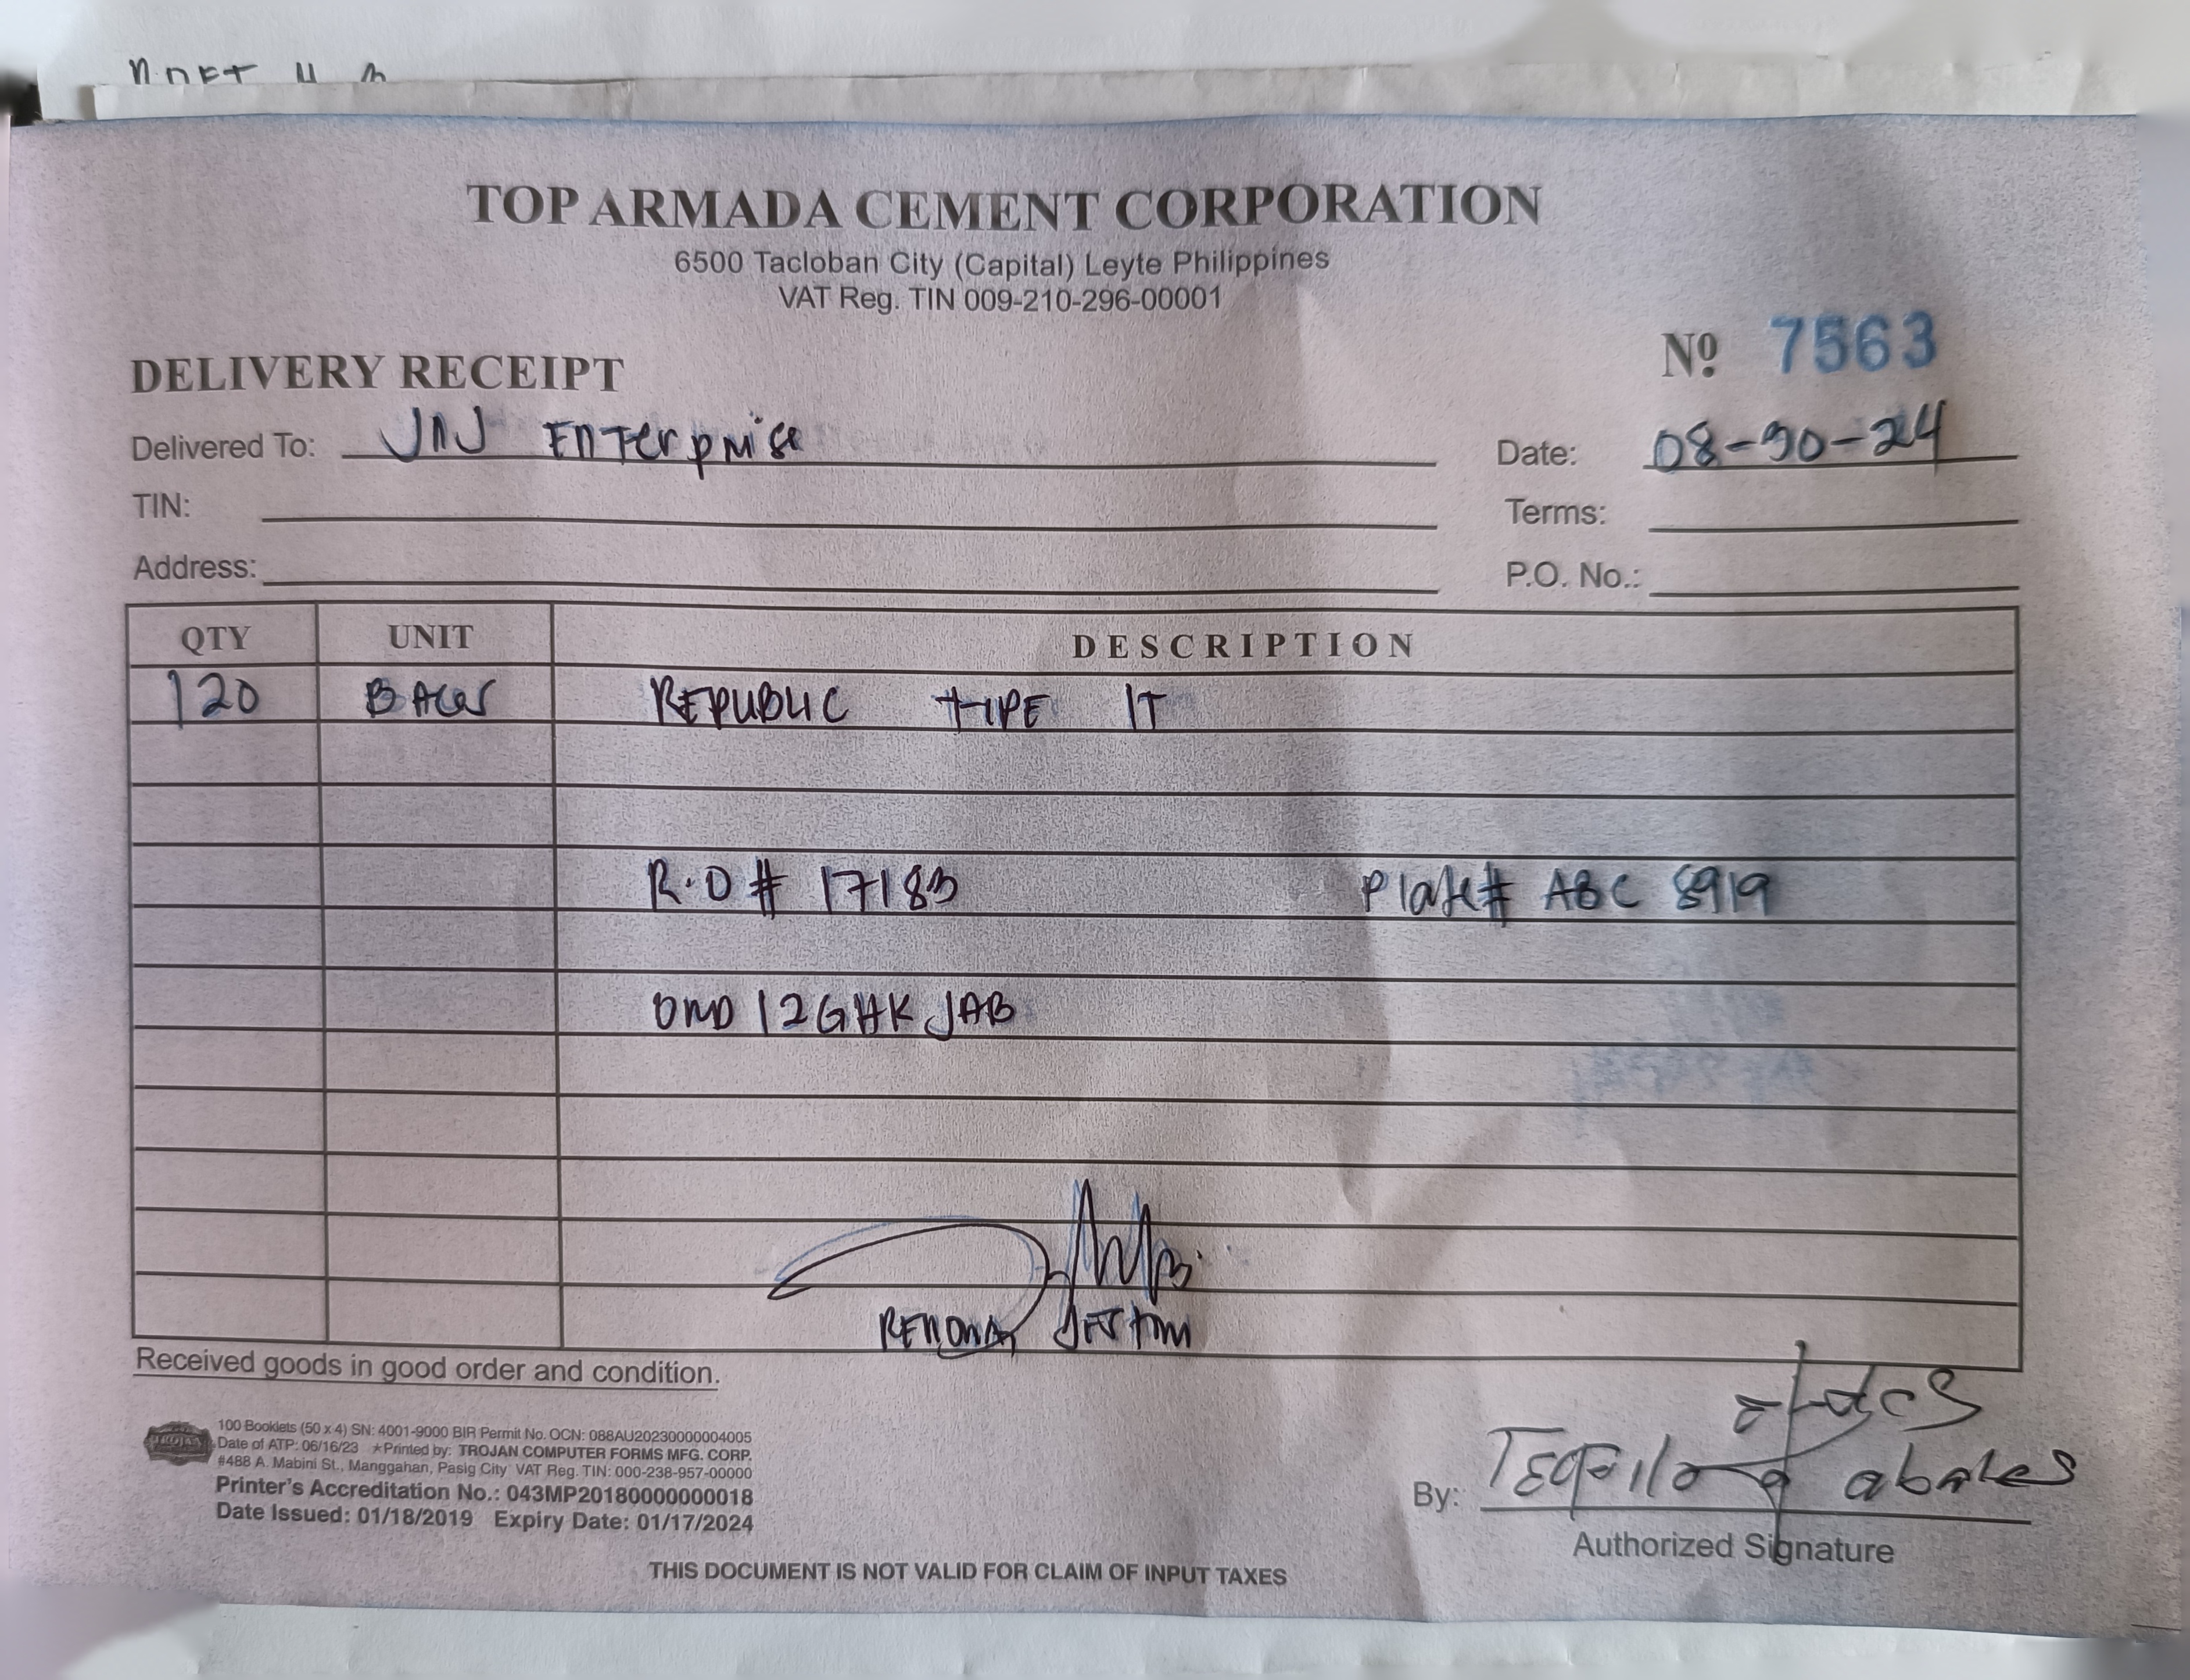 TOP ARMADA CEMENT CORPORATION
6500 Tacloban City (Capital) Leyte Philippines
VAT Reg. TIN 009-210-296-00001
DELIVERY RECEIPT
Nº 7563
Delivered To: JNJ Enterprise
Date: 08-30-24
TIN:
Terms:
Address:
P.O. No.:
QTY UNIT DESCRIPTION
120 BAGS REPUBLIC TYPE IT
R.O # 17183 Plate# ABC 8919
OMD 12GHK JAB
Received goods in good order and condition.
100 Booklets (50 x 4) SN: 4001-9000 BIR Permit No. OCN: 088AU20230000004005
Date of ATP: 06/16/23 ★Printed by: TROJAN COMPUTER FORMS MFG. CORP.
#488 A. Mabini St., Manggahan, Pasig City VAT Reg. TIN: 000-238-957-00000
Printer's Accreditation No.: 043MP20180000000018
Date Issued: 01/18/2019 Expiry Date: 01/17/2024
By:
Authorized Signature
THIS DOCUMENT IS NOT VALID FOR CLAIM OF INPUT TAXES